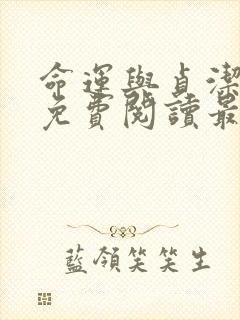 命運與貞潔
免費閱讀最
藍領笑笑生